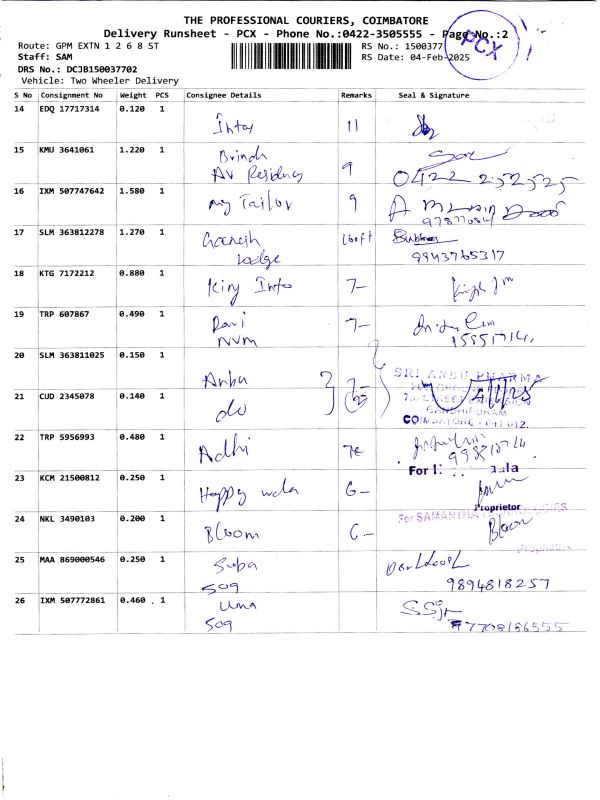 THE PROFESSIONAL COURIERS, COIMBATORE
Delivery Runsheet - PCX - Phone No.:0422-3505555 - Page No.:2
Route: GPM EXTN 1 2 6 8 ST
RS No.: 1500377
PCX
Staff: SAM
RS Date: 04-Feb-2025
DRS No.: DCJB150037702
Vehicle: Two Wheeler Delivery
S No Consignment No Weight PCS Consignee Details Remarks Seal & Signature
14 EDQ 17717314 0.120 1
11
15 KMU 3641061 1.220 1 Brinda
AV Residency 9
0422 252525
16 IXM 507747642 1.580 1 my Tailor 9
17 SLM 363812278 1.270 1 Ganesh
Lodge
9943765317
18 KTG 7172212 0.880 1 King Info 7-
19 TRP 607867 0.490 1 Ravi
NVM 7-
20 SLM 363811025 0.150 1 Anbu
SRI ANBU PHARMA
21 CUD 2345078 0.140 1 do
GANDHIPURAM
22 TRP 5956993 0.480 1 Adhi
For
23 KCM 21500812 0.250 1 Happy 6-
Proprietor
24 NKL 3490103 0.200 1 Bloom 6-
Bloom
25 MAA 869000546 0.250 1 Suba
509
9894818257
26 IXM 507772861 0.460 1 Uma
509
7708186555